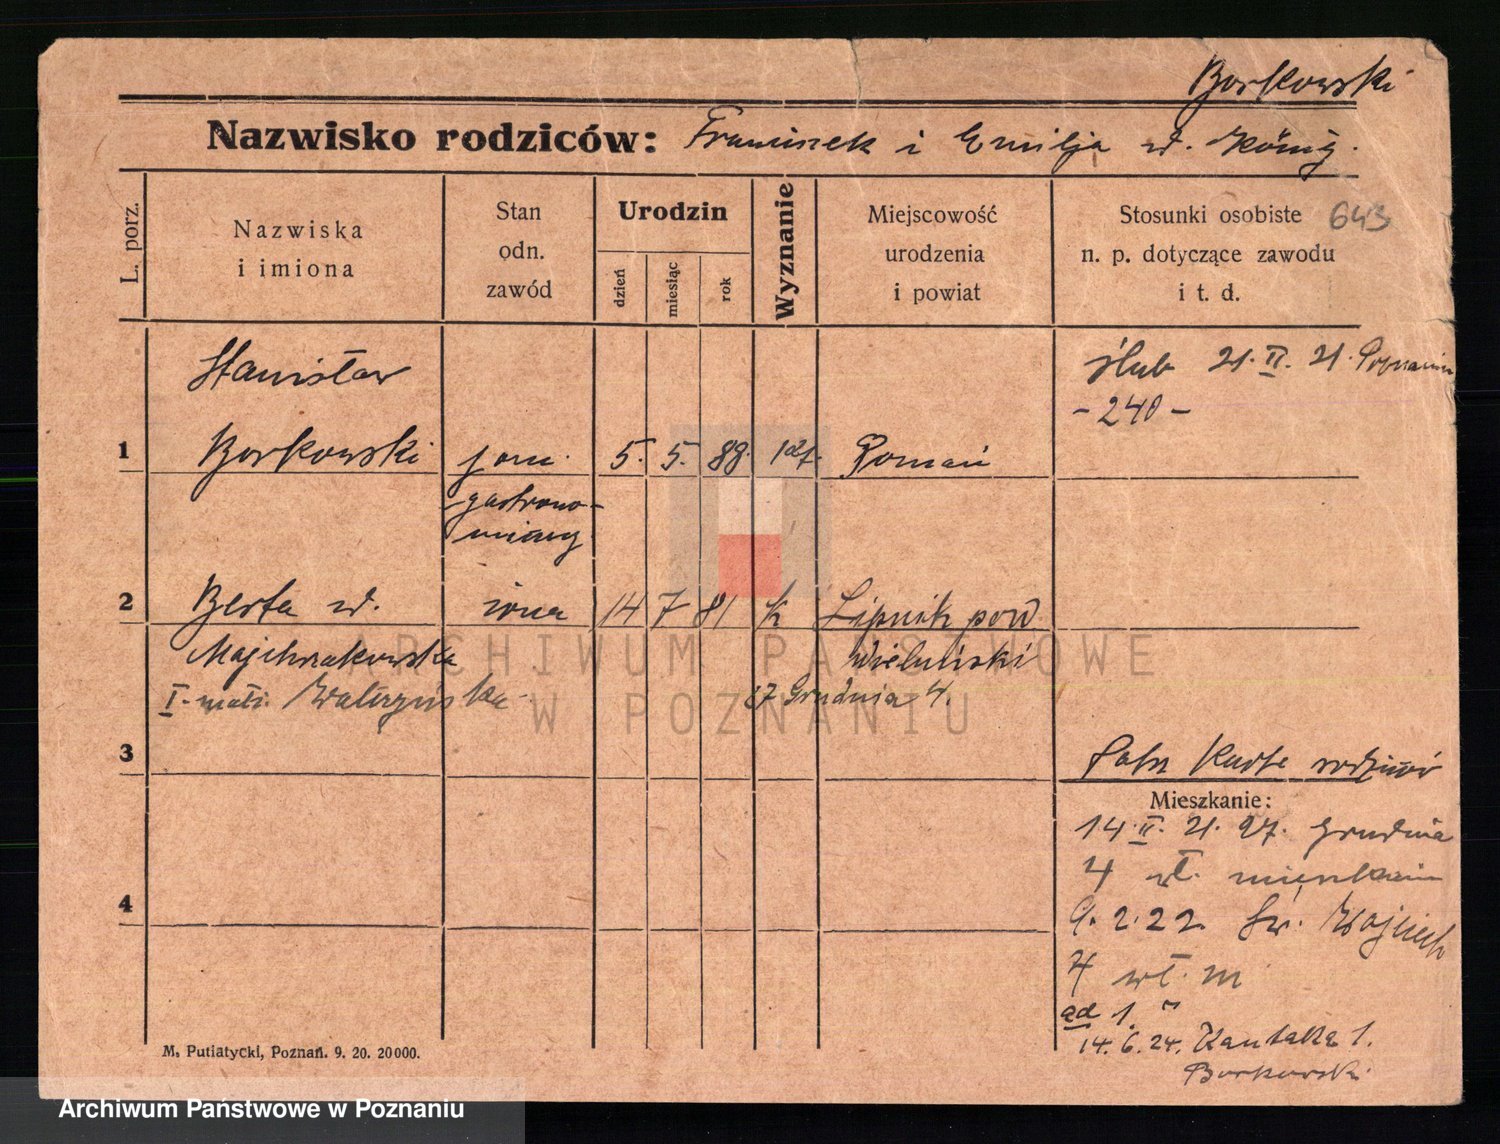 Borkowski
Nazwisko rodziców: Franciszek i Emilja z d. König.
L. porz.
Nazwiska
i imiona
Stan
odn.
zawód
Urodzin
dzień
miesiąc
rok
Wyznanie
Miejscowość
urodzenia
i powiat
Stosunki osobiste 643
n. p. dotyczące zawodu
i t. d.
Stanisław
ślub 21. II. 21. Poznaniu
- 240 -
1 Borkowski pom. 5. 5. 88. kat. Poznań
gastrono-
miczny
2 Berta z d. żona 14 7 81 k Lipnik pow
wieluński
I. małż.
27 Grudnia 4.
3
Patrz Karta rodziców
Mieszkanie:
14. II. 21. 27. Grudnia
4 wł. mieszkanie
4
9. 2. 22. Św. Wojciech
7 wł. m
ad 1. "
14. 6. 24. Kantaka 1.
Borkowski
M. Putiatycki, Poznań. 9. 20. 20000.
ARCHIWUM PAŃSTWOWE
W POZNANIU
Archiwum Państwowe w Poznaniu